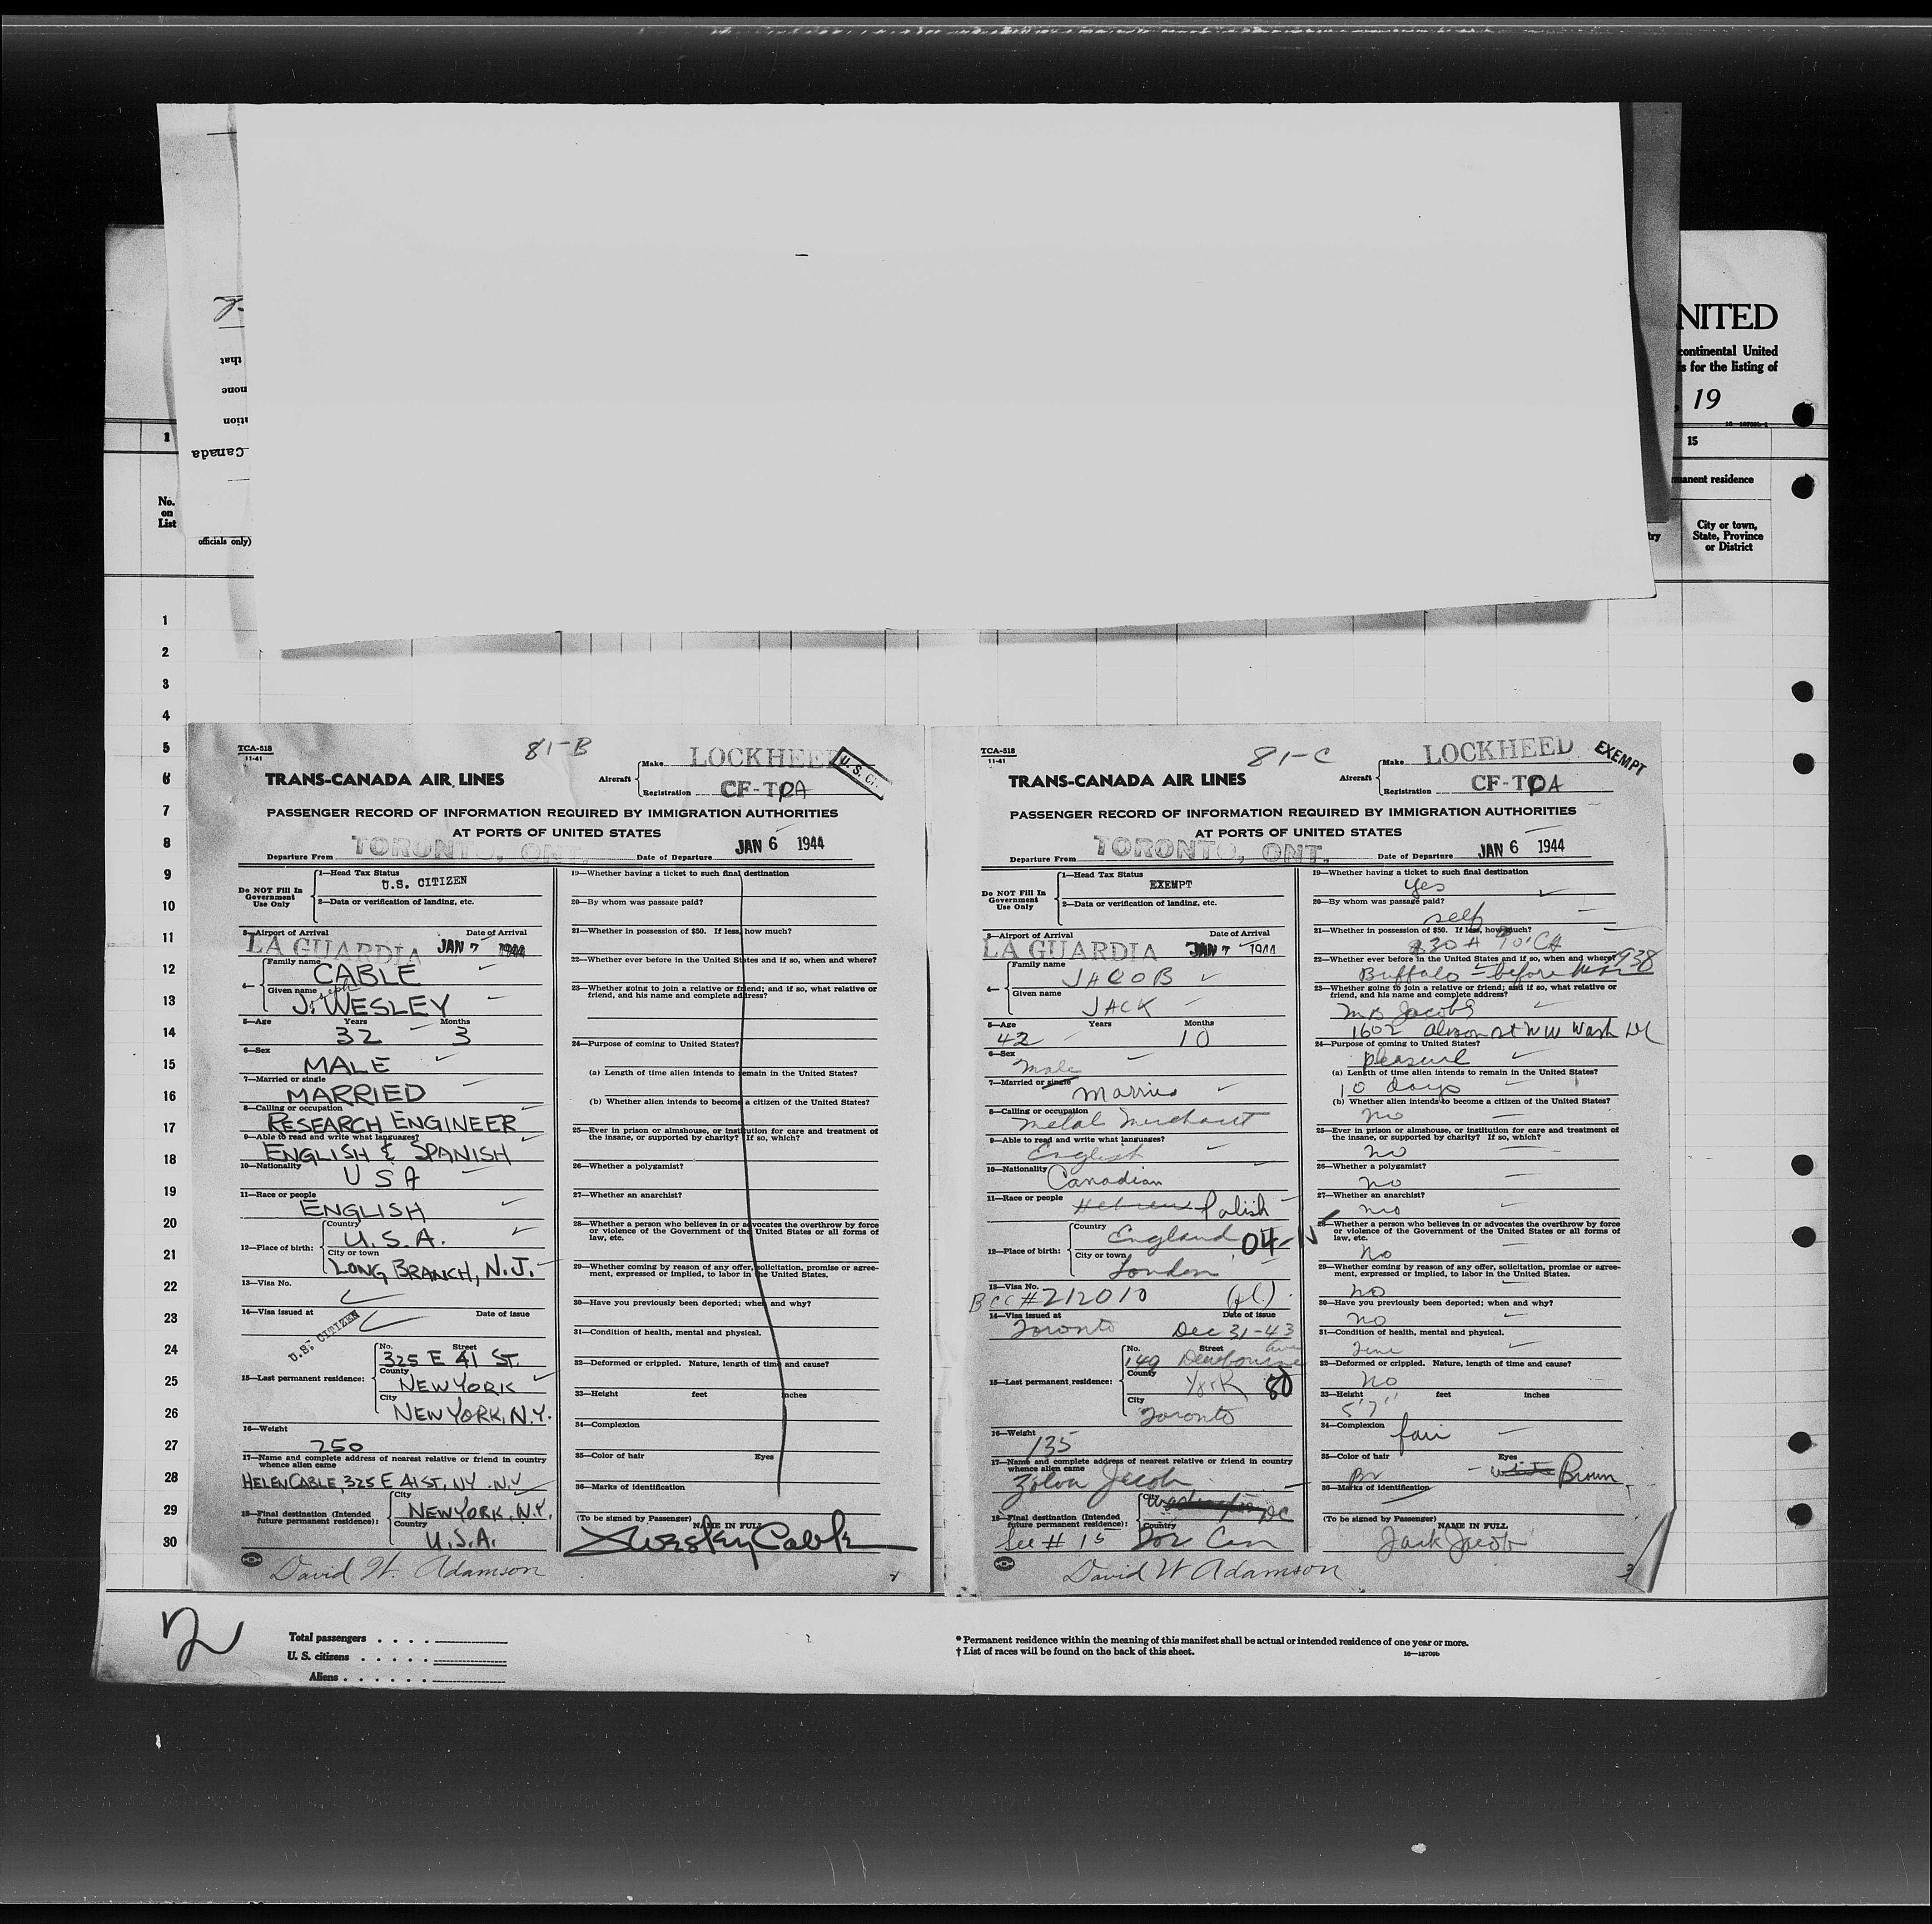 NITED
continental United
s for the listing of
19
16—18709b-1
1
15
manent residence
No.
on
List
officials only)
that
none
Canada
try
City or town,
State, Province
or District
1
2
3
4
5
6
7
8
9
10
11
12
13
14
15
16
17
18
19
20
21
22
23
24
25
26
27
28
29
30
TCA-518
11-41
81-B
Make LOCKHEED
U. S. Ci.
TRANS-CANADA AIR LINES
Aircraft
Registration CF-TCA
PASSENGER RECORD OF INFORMATION REQUIRED BY IMMIGRATION AUTHORITIES
AT PORTS OF UNITED STATES
Departure From TORONTO, ONT. Date of Departure JAN 6 1944
Do NOT Fill In
Government
Use Only
1—Head Tax Status
U.S. CITIZEN
2—Data or verification of landing, etc.
3—Airport of Arrival Date of Arrival
LA GUARDIA JAN 7 1944
4— Family name CABLE
Given name Joseph
J. WESLEY
5—Age Years Months
32 3
6—Sex
MALE
7—Married or single
MARRIED
8—Calling or occupation
RESEARCH ENGINEER
9—Able to read and write what languages?
ENGLISH & SPANISH
10—Nationality
U S A
11—Race or people
ENGLISH
12—Place of birth: Country
U.S.A.
City or town
LONG BRANCH, N.J.
13—Visa No.
14—Visa issued at Date of issue
U.S. CITIZEN
15—Last permanent residence: No. Street
325 E 41 ST.
County
NEW YORK
City
NEW YORK, N.Y.
16—Weight
250
17—Name and complete address of nearest relative or friend in country
whence alien came
HELEN CABLE, 325 E 41 ST, NY. N.Y
18—Final destination (Intended
future permanent residence): City
NEW YORK, N.Y.
Country
U.S.A.
David W. Adamson
19—Whether having a ticket to such final destination
20—By whom was passage paid?
21—Whether in possession of $50. If less, how much?
22—Whether ever before in the United States and if so, when and where?
23—Whether going to join a relative or friend; and if so, what relative or
friend, and his name and complete address?
24—Purpose of coming to United States?
(a) Length of time alien intends to remain in the United States?
(b) Whether alien intends to become a citizen of the United States?
25—Ever in prison or almshouse, or institution for care and treatment of
the insane, or supported by charity? If so, which?
26—Whether a polygamist?
27—Whether an anarchist?
28—Whether a person who believes in or advocates the overthrow by force
or violence of the Government of the United States or all forms of
law, etc.
29—Whether coming by reason of any offer, solicitation, promise or agree-
ment, expressed or implied, to labor in the United States.
30—Have you previously been deported; when and why?
31—Condition of health, mental and physical.
32—Deformed or crippled. Nature, length of time and cause?
33—Height feet inches
34—Complexion
35—Color of hair Eyes
36—Marks of identification
(To be signed by Passenger)
NAME IN FULL
J Wesley Cable
TCA-518
11-41
81-C
Make LOCKHEED
EXEMPT
TRANS-CANADA AIR LINES
Aircraft
Registration CF-TCA
PASSENGER RECORD OF INFORMATION REQUIRED BY IMMIGRATION AUTHORITIES
AT PORTS OF UNITED STATES
Departure From TORONTO, ONT. Date of Departure JAN 6 1944
Do NOT Fill In
Government
Use Only
1—Head Tax Status
EXEMPT
2—Data or verification of landing, etc.
3—Airport of Arrival Date of Arrival
LA GUARDIA JAN 7 1944
4— Family name
JACOB
Given name
JACK
5—Age Years Months
42 10
6—Sex
Male
7—Married or single
Married
8—Calling or occupation
Metal Merchant
9—Able to read and write what languages?
English
10—Nationality
Canadian
11—Race or people
Hebrew Polish
12—Place of birth: Country
England 04-
City or town
London
13—Visa No.
BCC #212010
14—Visa issued at Date of issue
Toronto Dec 31-43
15—Last permanent residence: No. Street
149 Ave
County
York 80
City
Toronto
16—Weight
135
17—Name and complete address of nearest relative or friend in country
whence alien came
Jacob
18—Final destination (Intended
future permanent residence): City
Washington DC
Country
See # 15 Tor Can
David W Adamson
19—Whether having a ticket to such final destination
Yes
20—By whom was passage paid?
self
21—Whether in possession of $50. If less, how much?
22—Whether ever before in the United States and if so, when and where?
Buffalo - before 1938
23—Whether going to join a relative or friend; and if so, what relative or
friend, and his name and complete address?
Jacobs
1602 st NW Wash DC
24—Purpose of coming to United States?
pleasure
(a) Length of time alien intends to remain in the United States?
10 days
(b) Whether alien intends to become a citizen of the United States?
no
25—Ever in prison or almshouse, or institution for care and treatment of
the insane, or supported by charity? If so, which?
no
26—Whether a polygamist?
no
27—Whether an anarchist?
no
28—Whether a person who believes in or advocates the overthrow by force
or violence of the Government of the United States or all forms of
law, etc.
no
29—Whether coming by reason of any offer, solicitation, promise or agree-
ment, expressed or implied, to labor in the United States.
no
30—Have you previously been deported; when and why?
no
31—Condition of health, mental and physical.
fine
32—Deformed or crippled. Nature, length of time and cause?
no
33—Height feet inches
5'7"
34—Complexion
fair
35—Color of hair Eyes
Br Brown
36—Marks of identification
(To be signed by Passenger)
NAME IN FULL
Jack Jacob
3
2
Total passengers
U. S. citizens
Aliens
* Permanent residence within the meaning of this manifest shall be actual or intended residence of one year or more.
† List of races will be found on the back of this sheet.
16—18709b